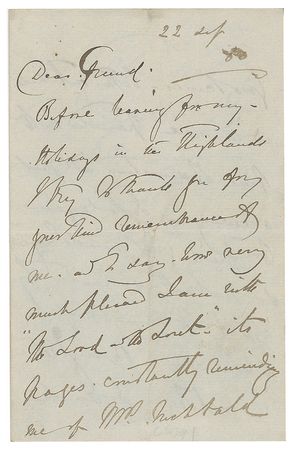 22 Sep
80
Dear Friend.
Before leaving for my
Holidays in the Highlands
I try to thank you for
your kind remembrance of
me. & to say how very
much pleased I am with
"The Lord & the" its
pages. constantly reminding
me of Mrs. Inchbald